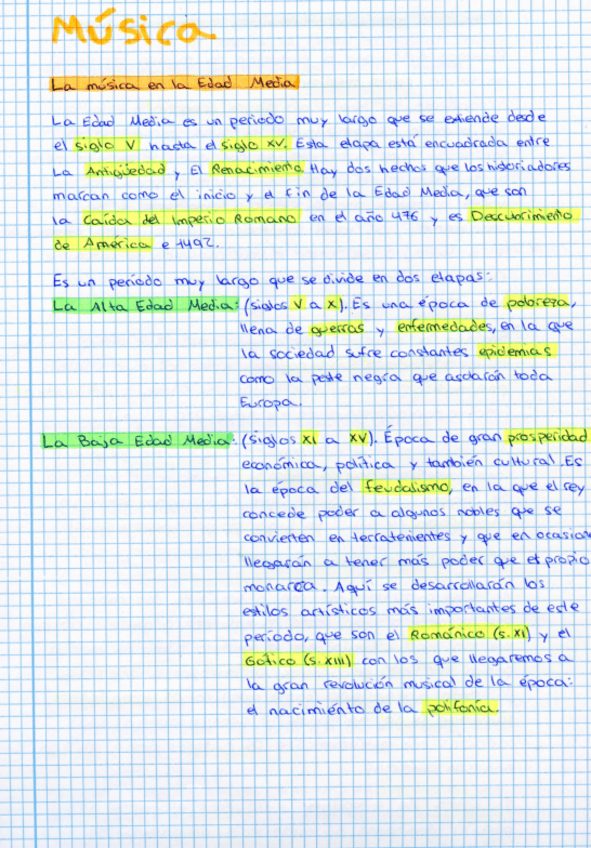 Música
La música en la Edad Media
La Edad Media es un periodo muy largo que se extiende desde
el siglo V hasta el siglo XV. Esta etapa está encuadrada entre
La Antigüedad y El Renacimiento. Hay dos hechos que los historiadores
marcan como el inicio y el fin de la Edad Media, que son
la Caída del Imperio Romano en el año 476 y es Descubrimiento
de América e 1492.
Es un periodo muy largo que se divide en dos etapas:
La Alta Edad Media: (siglos V a X). Es una época de pobreza,
llena de guerras y enfermedades, en la que
la sociedad sufre constantes epidemias
como la peste negra que asolarán toda
Europa.
La Baja Edad Media: (siglos XI a XV). Época de gran prosperidad
económica, política y también cultural. Es
la época del feudalismo, en la que el rey
concede poder a algunos nobles que se
convierten en terratenientes y que en ocasion
llegarán a tener más poder que el propio
monarca. Aquí se desarrollarán los
estilos artísticos más importantes de este
período, que son el Románico (s. XI) y el
Gótico (s. XIII) con los que llegaremos a
la gran revolución musical de la época:
el nacimiento de la polifonía.